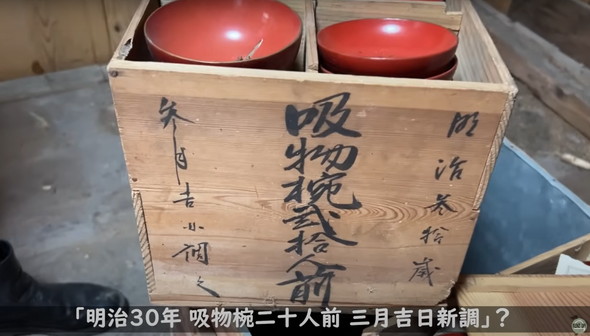 明治参拾歳
吸物椀弐拾人前
参月吉調之
「明治30年 吸物椀二十人前 三月吉日新調」？